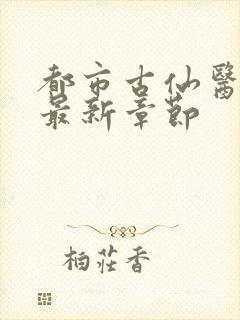 都市古仙醫
最新章節
柏莊香